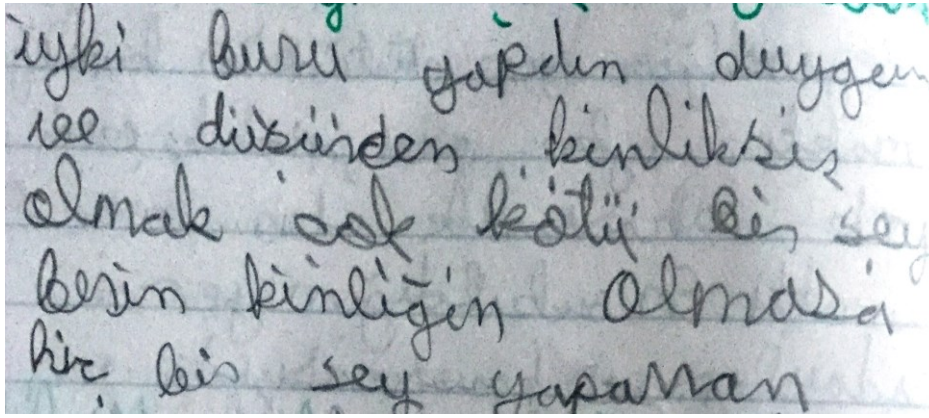 iyki buru yapdın duygu
ve düsünden kinliksis
olmak cok kötü bir sey
besin kinliğin olmasa
hiç bir sey yapaman